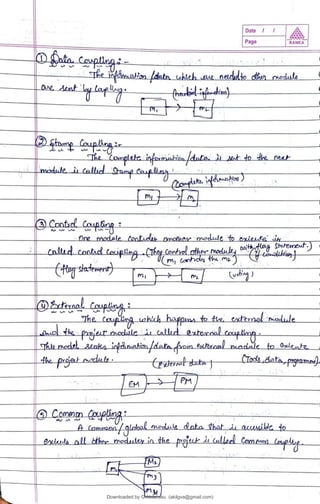 Date / /
Page
RANKA
① Data Coupling :-
The information/data which are needed to other module
are sent by Coupling.
(needed information)
m1 → m2
② Stamp Coupling :-
The complete information/data is sent to the next
module is called Stamp Coupling.
(complete information)
m1 → m2
③ Control Coupling :
One module controls another module to execute is
called control coupling. (They control other modules with flag statement.)
(flag statement) (m1 controls the m2) (if condition)
m1 → m2
④ External Coupling :
The coupling which happens to the external module
and the project module is called external coupling.
This model seeks information/data from external module to execute
the project module. (External data) (Tools, data, programmer)
EM → PM
⑤ Common Coupling :
A common/global module data that is accessible to
all other modules in the project is called Common Coupling.
M1
M2
M3
M4
Downloaded by (akilgva@gmail.com)